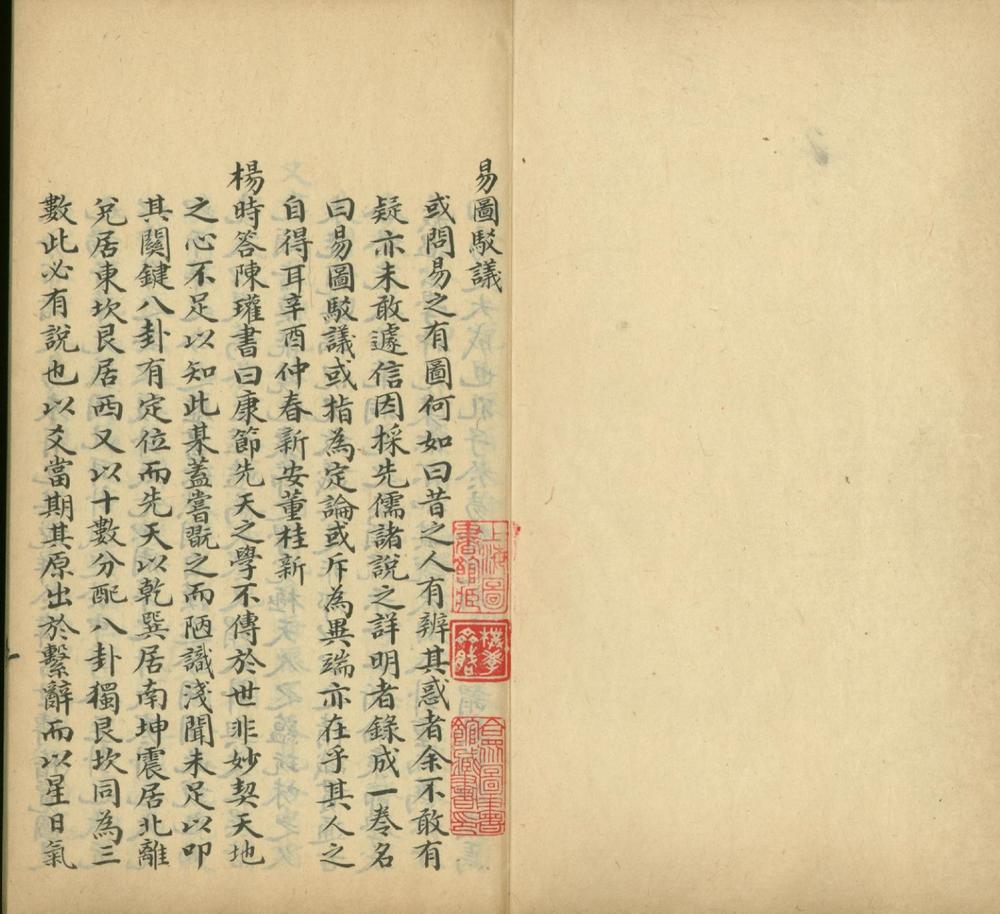 易圖駁議
或問易之有圖何如曰昔之人有辨其惑者余不敢有
疑亦未敢遽信因採先儒諸說之詳明者錄成一卷名
曰易圖駁議或指為定論或斥為異端亦在乎其人之
自得耳辛酉仲春新安董桂新
楊時答陳瓘書曰康節先天之學不傳於世非妙契天地
之心不足以知此某蓋嘗翫之而陋識淺聞未足以叩
其關鍵八卦有定位而先天以乾巽居南坤震居北離
兌居東坎艮居西又以十數分配八卦獨艮坎同為三
數此必有說也以爻當期其原出於繫辭而以星日氣
上海圖
書館
合眾圖書
館藏書印